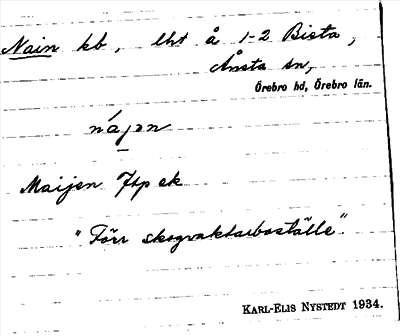 Nain kb, lht å 1-2 Bista,
Ånsta sn,
Örebro hd, Örebro län.
nájən
Maijen Jtp ek
"Förr skogvaktarboställe".
KARL-ELIS NYSTEDT 1934.